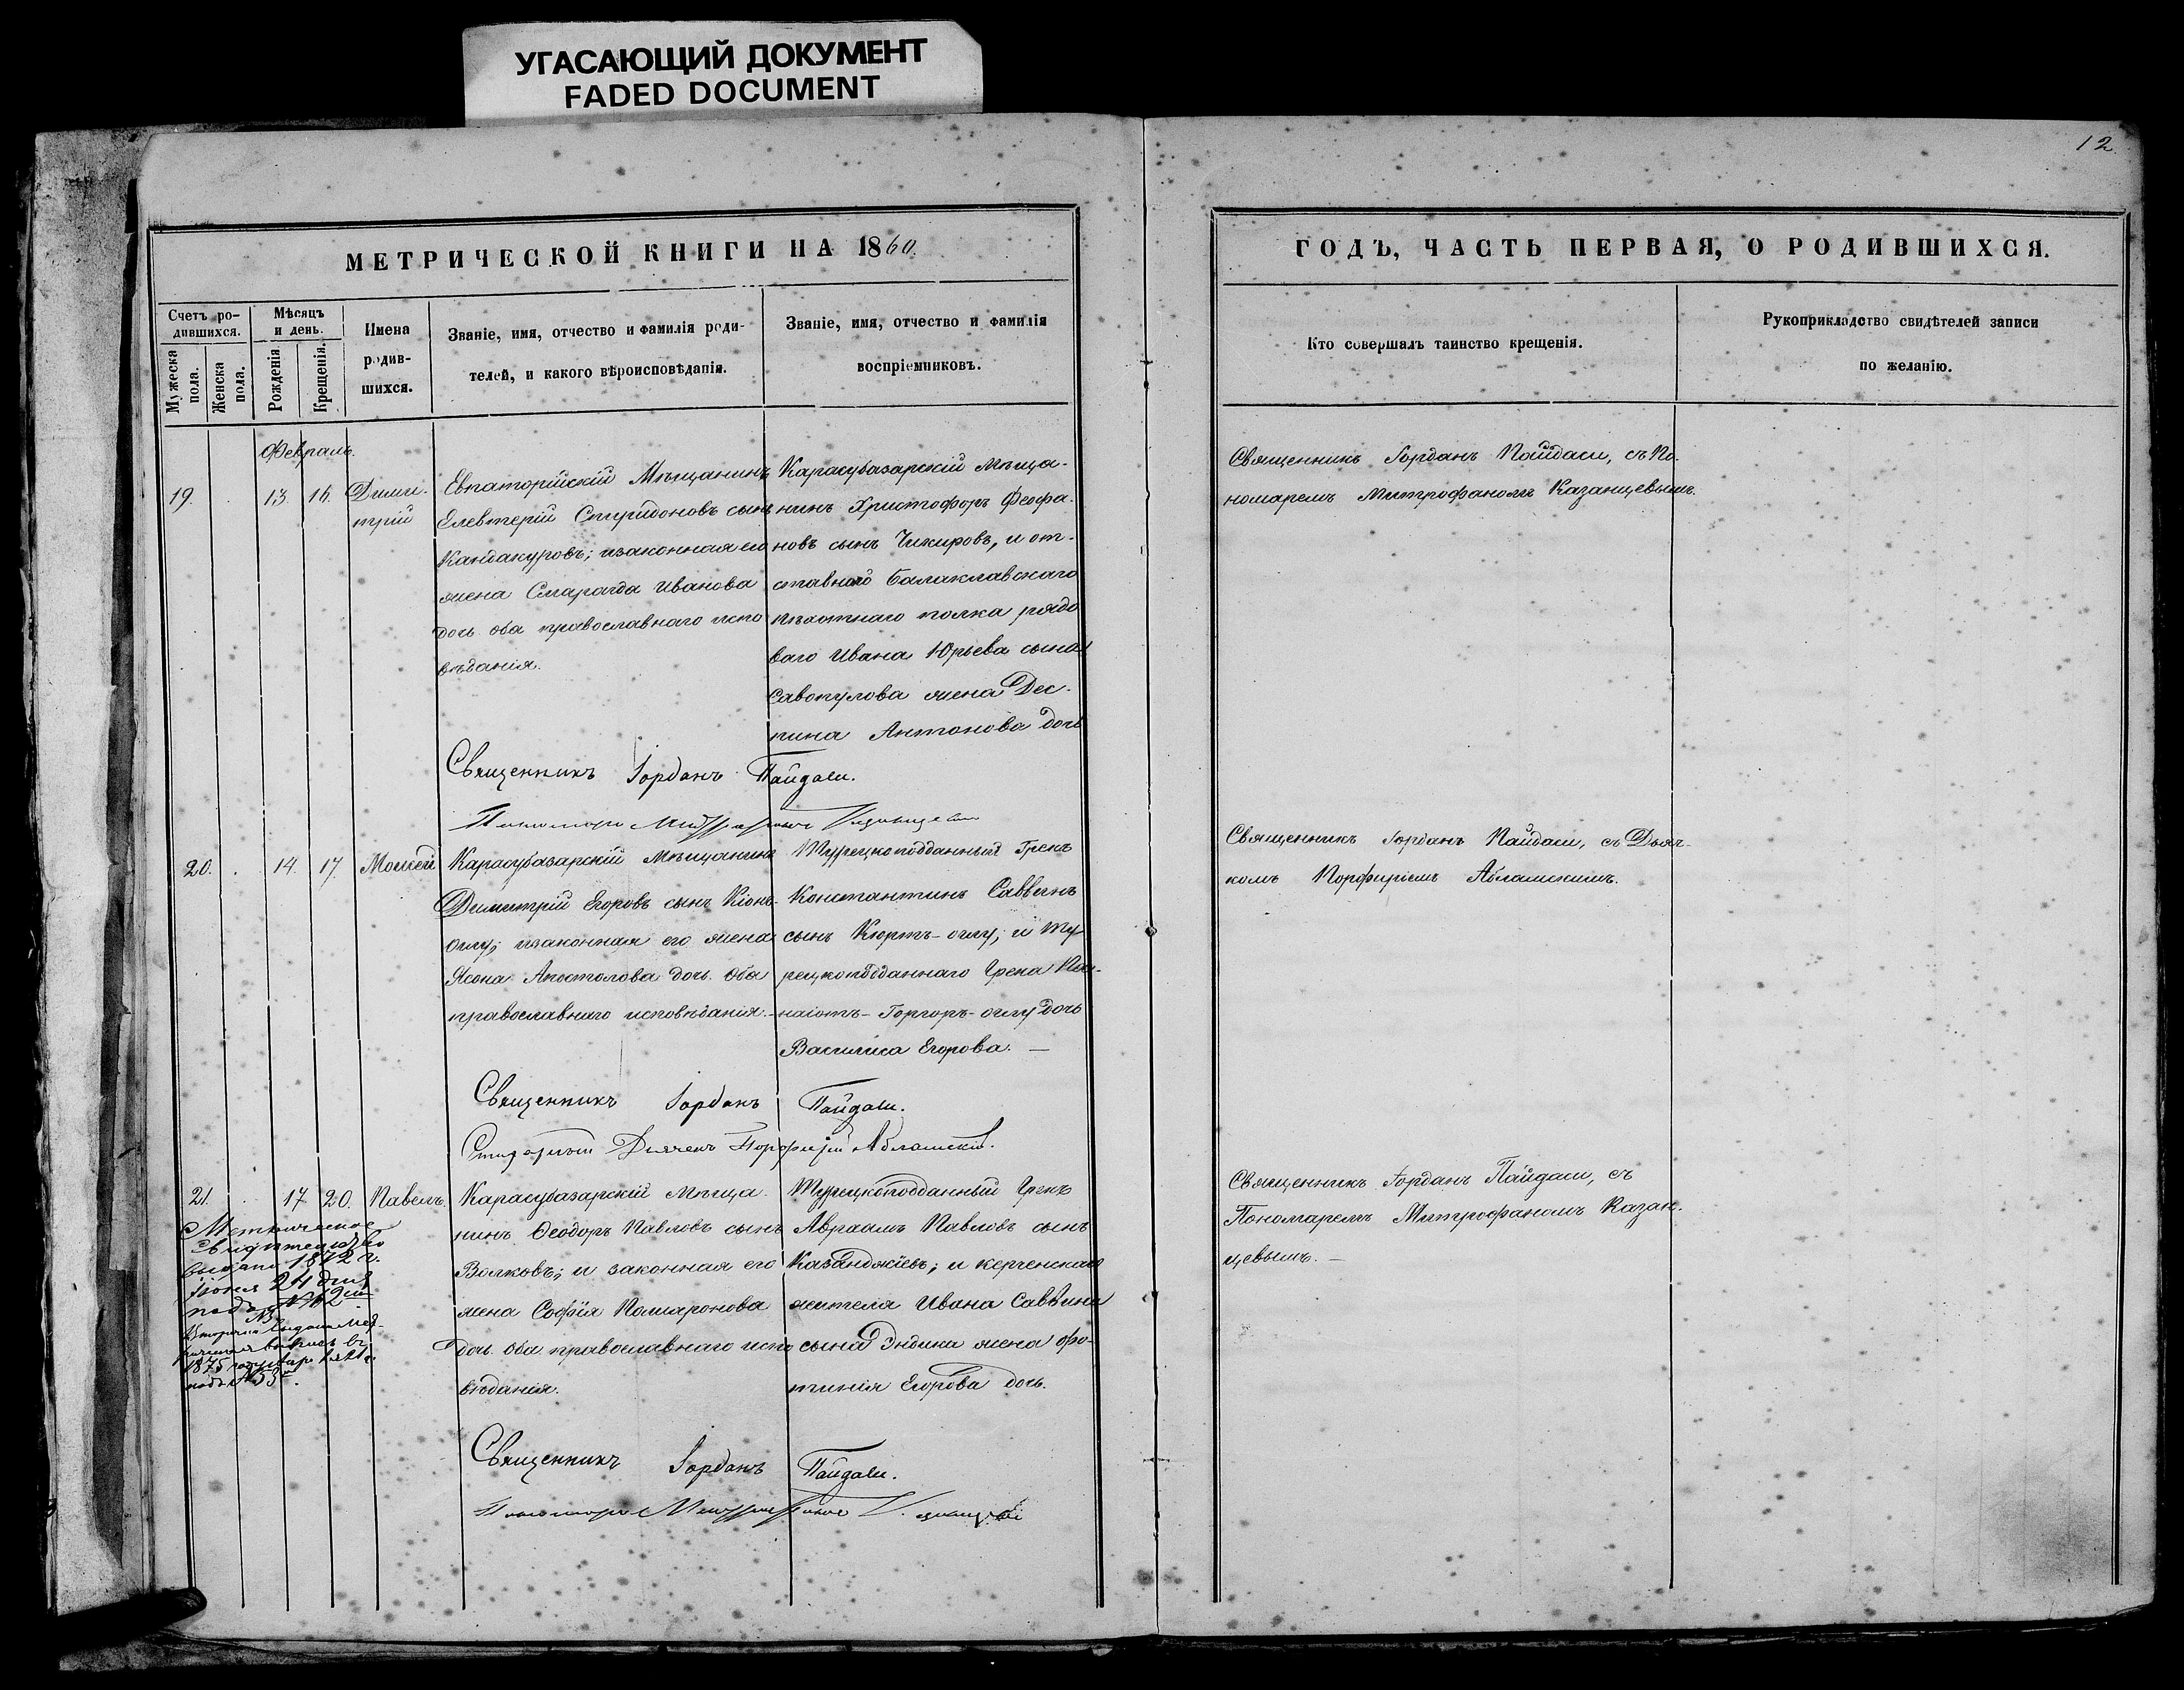 УГАСАЮЩИЙ ДОКУМЕНТ
FADED DOCUMENT
12
МЕТРИЧЕСКОЙ КНИГИ НА 1860.
Счетъ ро-
дившихся.
Мужеска
пола.
Женска
пола.
Мѣсяцъ
и день.
Рожденія
Крещенія.
Имена
родив-
шихся.
Званіе, имя, отчество и фамилія роди-
телей, и какого вѣроисповѣданія.
Званіе, имя, отчество и фамилія
воспріемниковъ.
ГОДЪ, ЧАСТЬ ПЕРВАЯ, О РОДИВШИХСЯ.
Кто совершалъ таинство крещенія.
Рукоприкладство свидѣтелей записи
по желанію.
Февраль.
19. 13. 16. Дими-
трій
Евпаторійскій Мѣщанинъ
Елевтерій Спиридоновъ сынъ
Кандакуровъ; изаконная его
жена Смарагда Иванова
дочь оба православнаго испо
вѣданія.
Карасубазарскій Мѣща-
нинъ Христофоръ Феофа-
новъ сынъ Чикировъ, и от-
ставнаго Балаклавскаго
пѣхотнаго полка рядо
ваго Ивана Юрьева сына
Савопулова жена Дес-
пина Антонова дочь
Священникъ Іорданъ Пайдаси, съ По-
номаремъ Митрофаномъ Казанцевымъ.
Священникъ Іорданъ Пайдаси.
Пономарь Митрофанъ Казанцевъ
20. 14. 17 Моисей
Карасубазарскій Мѣщанинъ
Димитрій Егоровъ сынъ Кіонъ-
оглу; изаконная его жена
Ясона Апостолова дочь. Оба
православнаго исповѣданія.
Турецкоподданный Грекъ
Константинъ Саввинъ
сынъ Кюртъ-оглу; и Ту-
рецкоподданнаго Грека Па-
наіотъ-Горгоръ-оглу дочь
Василика Егорова. —
Священникъ Іорданъ Пайдаси, съ Дьяч-
комъ Порфиріемъ Абламскимъ.
Священникъ Іорданъ Пайдаси.
Дьячекъ Порфирій Абламскій.
21. 17 20. Павелъ.
Карасубазарскій Мѣща-
нинъ Ѳеодоръ Павловъ сынъ
Волковъ; и законная его
жена Софія
дочь оба православнаго испо
вѣданія.
Турецкоподданный Грекъ
Авраамъ Павловъ сынъ
Казанджіевъ; и керченскаго
жителя Ивана Саввина
сына Эндика жена Фо-
тинія Егорова дочь.
Священникъ Іорданъ Пайдаси, съ
Пономаремъ Митрофаномъ Казан-
цевымъ. —
Метрическое
Свидѣтельство
выдано 1872 г.
Іюня 24 дня
подъ №
Вторично выдана Мет-
1875
подъ № 33
Священникъ Іорданъ Пайдаси.
Пономарь Митрофанъ